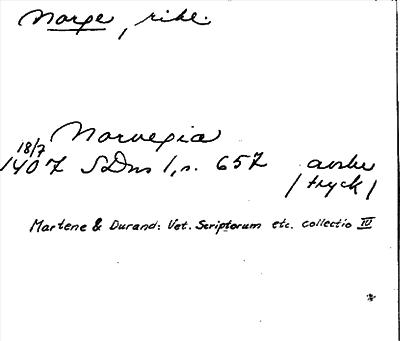 Norge, rike.
Norvegia
18/7
1407 SDns 1, s. 657 avskr
/tryck/
Martene & Durand: Vet. Scriptorum etc. collectio IV